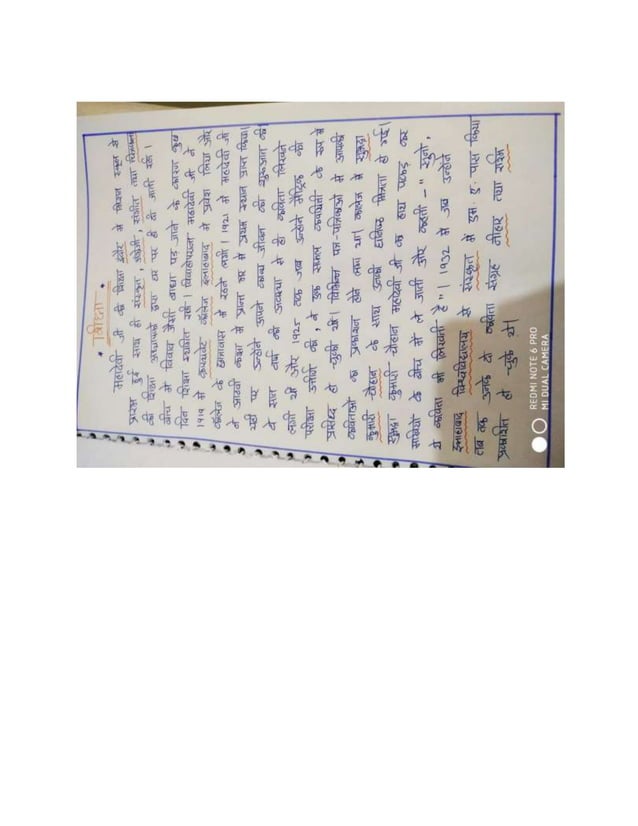 शिक्षा
महादेवी जी की शिक्षा इंदौर में मिशन स्कूल से
प्रारम्भ हुई साथ ही संस्कृत, अंग्रेजी, संगीत तथा चित्रकला
की शिक्षा अध्यापकों द्वारा घर पर ही दी जाती रही।
बीच में विवाह जैसी बाधा पड़ जाने के कारण कुछ
दिन शिक्षा स्थगित रही। विवाहोपरान्त महादेवी जी ने
1919 में क्रास्थवेट कॉलेज इलाहाबाद में प्रवेश लिया और
कॉलेज के छात्रावास में रहने लगी। 1921 में महादेवी जी
ने आठवी कक्षा में प्रान्त भर में प्रथम स्थान प्राप्त किया।
यही पर उन्होंने अपने काव्य जीवन की शुरुआत की।
वे सात वर्ष की अवस्था से ही कविता लिखने
लगी थी और 1925 तक जब उन्होंने मैट्रिक की
परीक्षा उत्तीर्ण की, वे एक सफल कवयित्री के रूप में
प्रसिध्द हो चुकी थी। विभिन्न पत्र-पत्रिकाओं में आपकी
कविताओं का प्रकाशन होने लगा था। कालेज में सुभद्रा
कुमारी चौहान के साथ उनकी घनिष्ठ मित्रता हो गई।
सुभद्रा कुमारी चौहान महादेवी जी का हाथ पकड़ कर
सखियों के बीच में ले जाती और कहती -" सुनो,
ये कविता भी लिखती है"। 1932 में जब उन्होंने
इलाहाबाद विश्वविद्यालय से संस्कृत में एम. ए. पास किया
तब तक उनके दो कविता संग्रह नीहार तथा रश्मि
प्रकाशित हो चुके थे।
REDMI NOTE 6 PRO
MI DUAL CAMERA